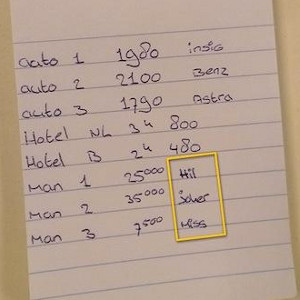 auto 1 1980 insig
auto 2 2100 Benz
auto 3 1790 Astra
Hotel NL 3u 800
Hotel B 2u 480
man 1 25000 Hil
man 2 35000
man 3 7500 Miss